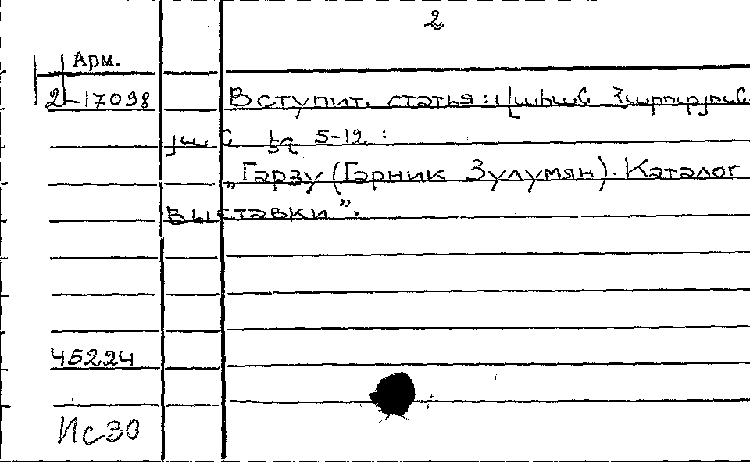 2
Арм.
2-17098
Вступит. статья: Վահան Հարություն
յան էջ 5-12:
„Гарзу (Гарник Зулумян). Каталог
выставки”.
45224
Ис30